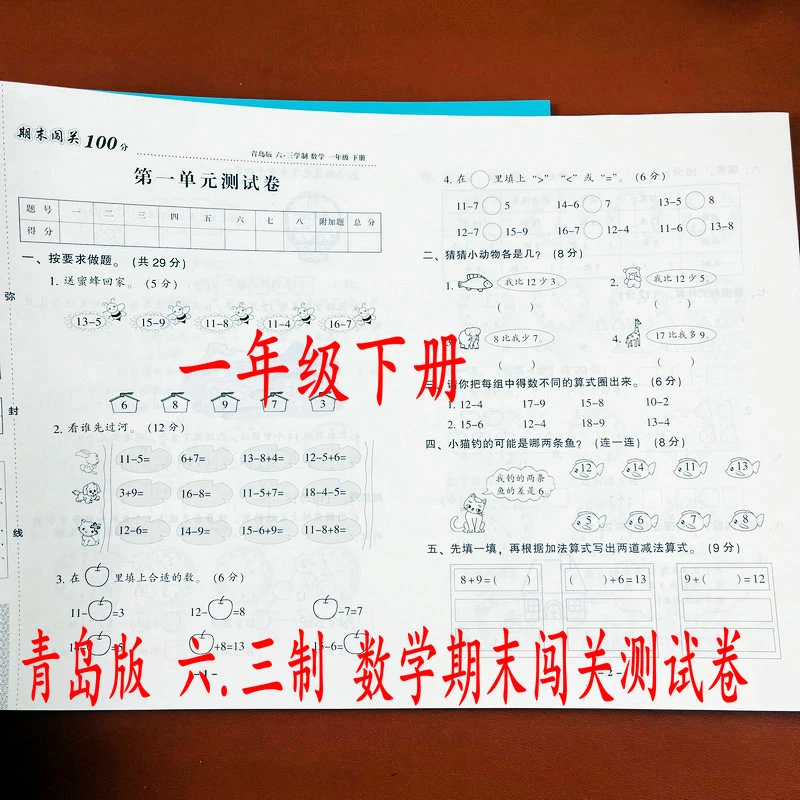 期末闯关100分
青岛版 六·三学制 数学 一年级 下册
第一单元测试卷
题号 一 二 三 四 五 六 七 八 附加题 总分
得分
一、按要求做题。(共29分)
1. 送蜜蜂回家。(5分)
13-5 15-9 11-8 11-4 16-7
6 8 9 7 3
2. 看谁先过河。(12分)
11-5= 6+7= 13-8+4= 12-5+6=
3+9= 16-8= 11-5+7= 18-4-5=
12-6= 14-9= 15-6+9= 11-8+8=
3. 在○里填上合适的数。(6分)
11-○=3 12-○=8 ○-7=7
○+8=13
-1-
弥
封
线
4. 在○里填上“>”“<”或“=”。(6分)
11-7○5 14-6○7 13-5○8
12-7○15-9 16-7○12-4 11-6○13-8
二、猜猜小动物各是几?(8分)
1. 我比12少3。 2. 我比12少5。
( ) ( )
8比我少7。 4. 17比我多9。
( ) ( )
请你把每组中得数不同的算式圈出来。(6分)
1. 12-4 17-9 15-8 10-2
2. 15-6 12-4 18-9 13-4
四、小猫钓的可能是哪两条鱼?(连一连)(8分)
我钓的两条
鱼的差是6。
12 14 11 13
5 6 7 8
五、先填一填,再根据加法算式写出两道减法算式。(9分)
8+9=( ) ( )+6=13 9+( )=12
-2-
一年级下册
青岛版 六.三制 数学期末闯关测试卷